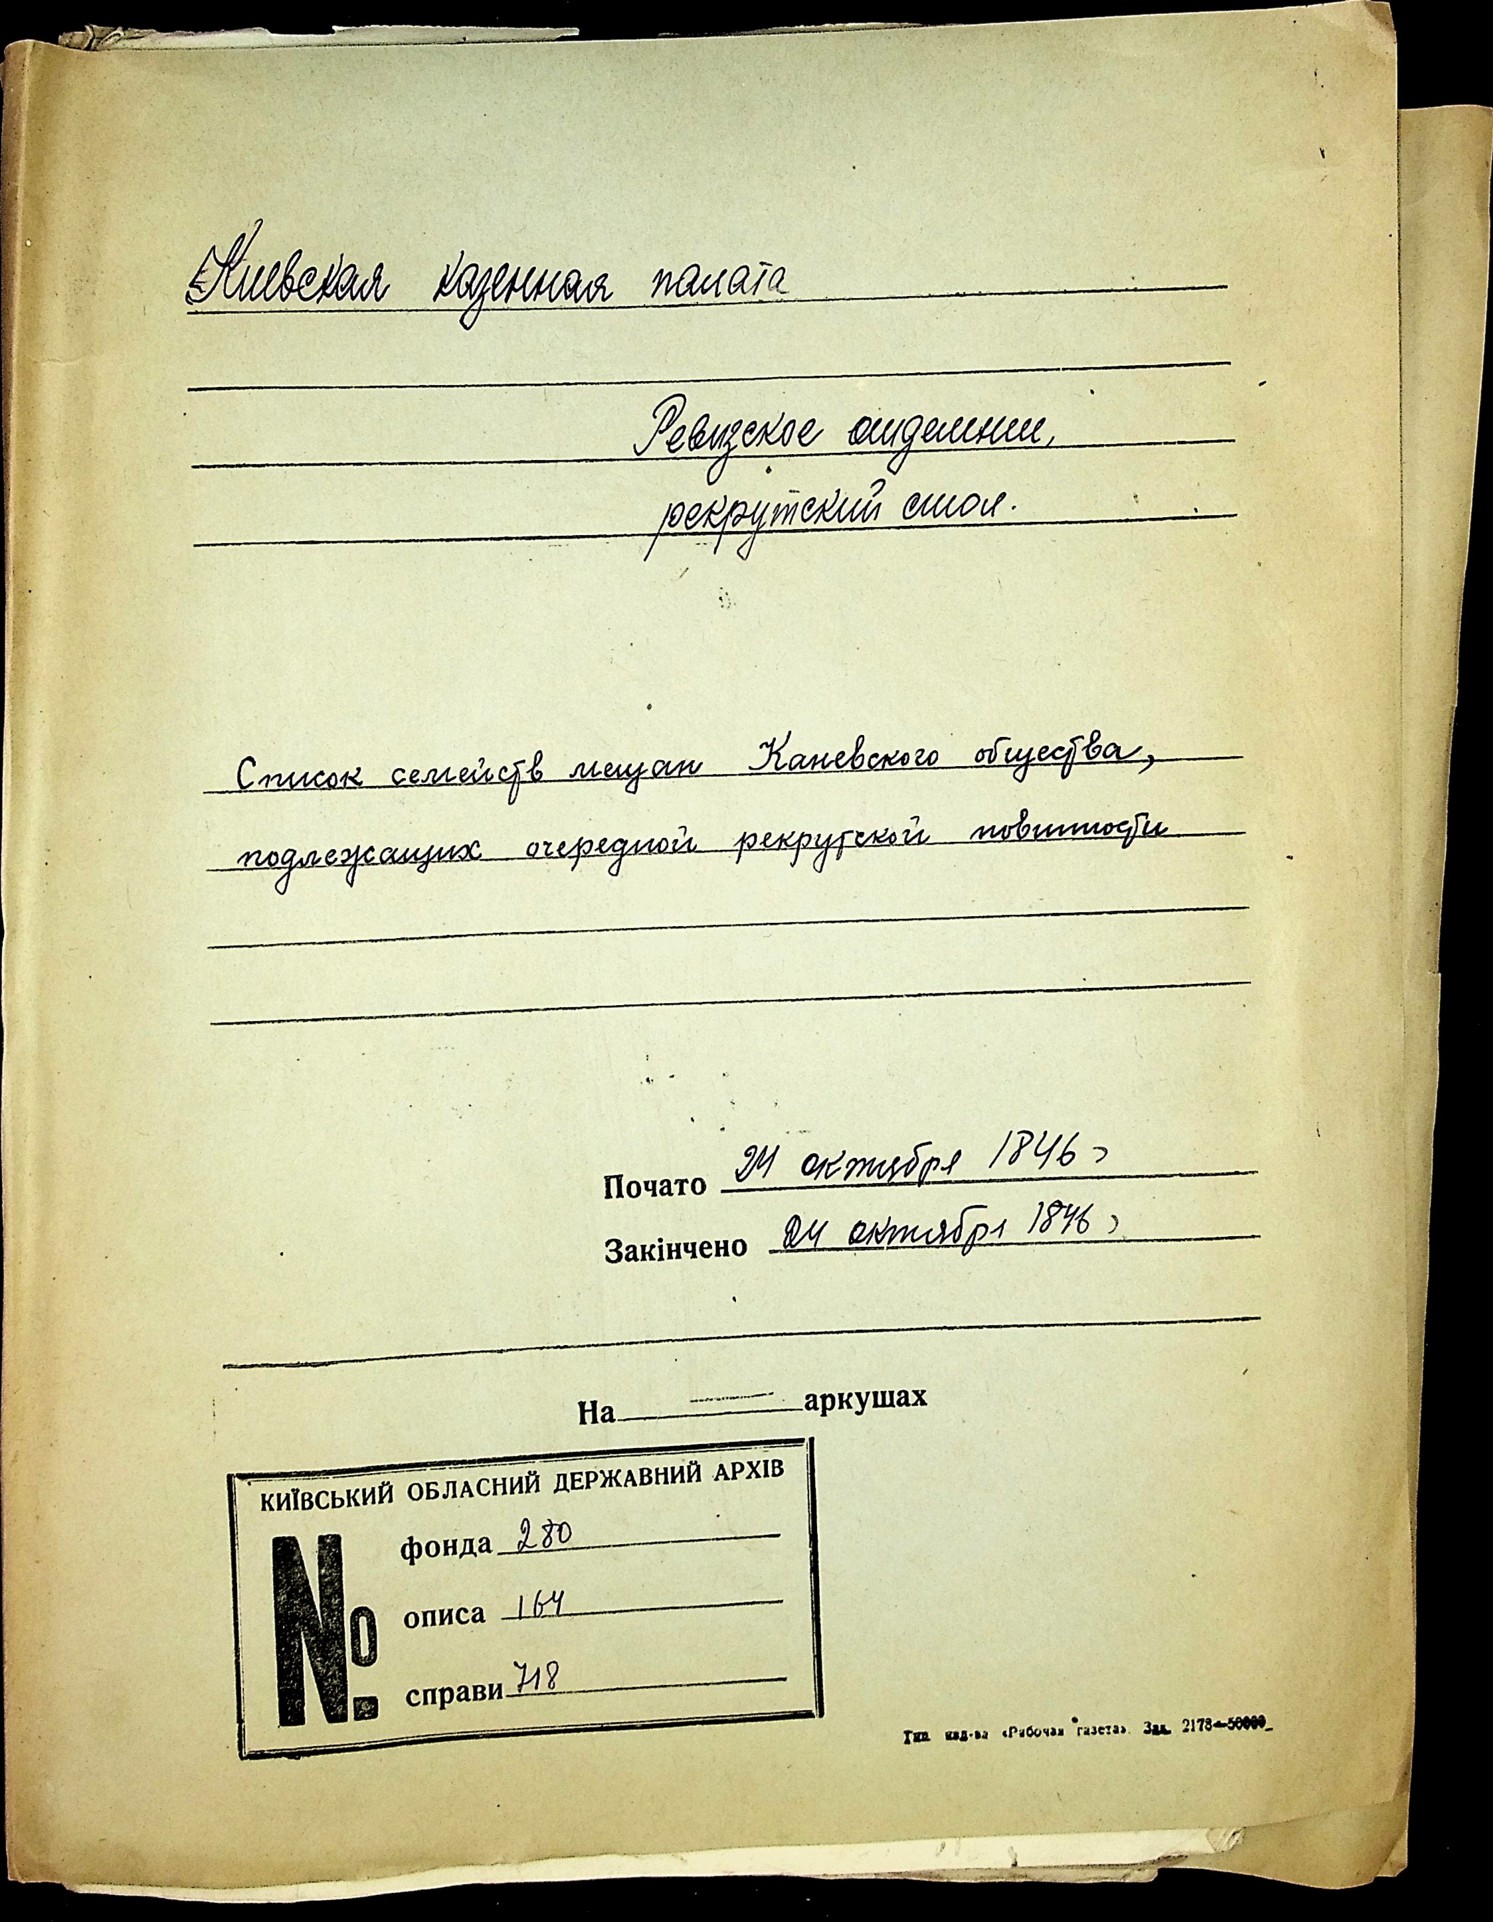 Киевская казенная палата
Ревизское отделение,
рекрутский стол.
Список семейств мещан Каневского общества,
подлежащих очередной рекрутской повинности
Почато 24 октября 1846 г
Закінчено 24 октября 1846 г
На — аркушах
КИЇВСЬКИЙ ОБЛАСНИЙ ДЕРЖАВНИЙ АРХІВ
№
фонда 280
описа 164
справи 718
Тип. изд-ва «Рабочая газета». Зак. 2178—50000